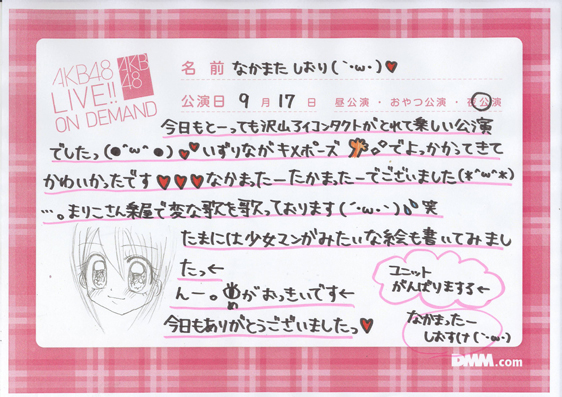 AKB48
LIVE!!
ON DEMAND
AKB
48
名前 なかまた しおり(｀・ω・)♥
公演日 9月17日 昼公演・おやつ公演・夜公演
今日もとーっても沢山アイコンタクトがとれて楽しい公演
でしたっ(●^ω^●)♥♥いずりながキメポーズ でよっかかってきて
かわいかったです♥♥♥なかまったーたかまったーでございました(*^ω^*)
…。まりこさん楽屋で変な歌を歌っております(´・ω・｀)笑
たまには少女マンガみたいな絵も書いてみまし
たっ←
んー。 がおっきいです←
今日もありがとうございましたっ♥
ユニット
がんばりまする←
なかまったー
しおすけ(｀・ω・)
DMM.com